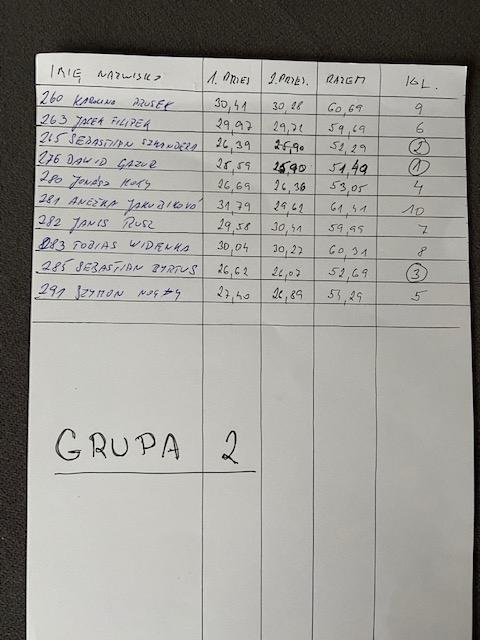 IMIĘ NAZWISKO 1. PRZEJ 2. PRZEJ. RAZEM KL.
260 KARINA PRUSEK 30,41 30,28 60,69 9
263 JACEK FILIPEK 29,97 29,72 59,69 6
265 SEBASTIAN SZKANDERA 26,39 25,90 52,29 2
276 DAWID GAZUR 25,59 25,90 51,49 1
280 TOMÁŠ 26,69 26,36 53,05 4
281 ANEŽKA JAKUBIKOVÁ 31,79 29,62 61,41 10
282 JANIS RUSZ 29,58 30,41 59,99 7
283 TOBIAS WIDENKA 30,04 30,27 60,31 8
285 SEBASTIAN BYRTUS 26,62 26,07 52,69 3
291 SZYMON 27,40 26,89 54,29 5
GRUPA 2